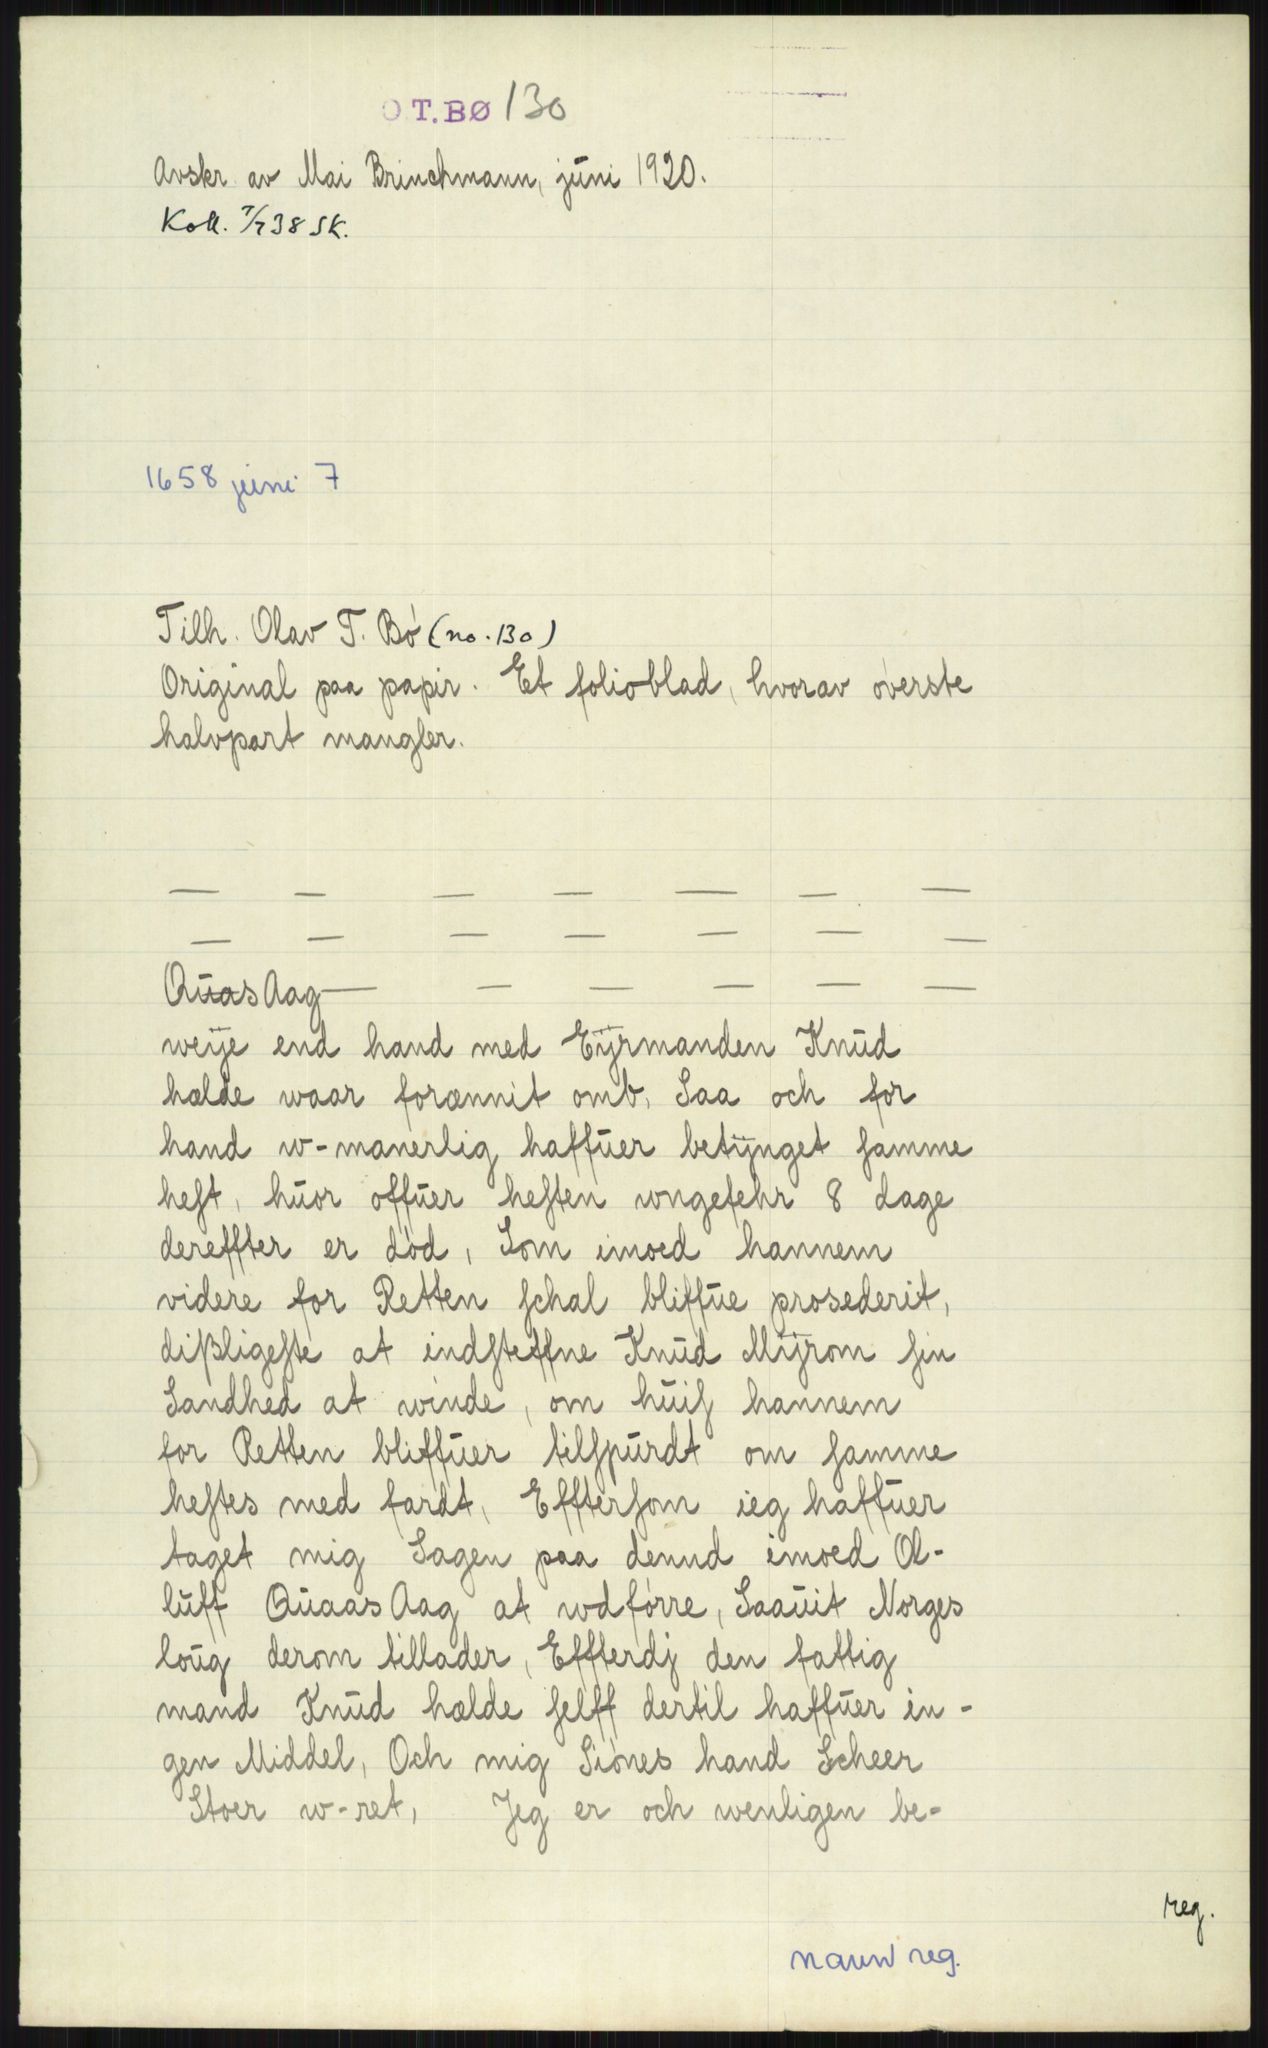 O.T.BØ 130
Avskr. av Mai Brinchmann, juni 1920.
Koll. 7/7 38 SK.
1658 juni 7
Tilh. Olav T. Bø (no. 130)
Original paa papir. Et folioblad, hvorav øverste
halvpart mangler.
— — — — — — —
— — — — — — —
QuasAag — — — — — —
weÿe end hand med Eÿrmanden Knud
hælde waar forænnit omb, Saa och for
hand w-manerlig haffuer betÿnget samme
hest, huor offuer hesten wngefehr 8 dage
dereffter er död, Som imoed hannem
videre for Retten schal bliffue prosederit,
dißligeste at indsteffne Knud Mÿrom sin
Sandhed at winde, om huis hannem
for Retten bliffuer tilspurdt om samme
hestes med fardt, Efftersom ieg haffuer
taget mig Sagen paa dennd imoed Ol-
luff QuaasAag at wdförre, Saauit Norges
loug derom tillader, Effterdj den fattig
mand Knud hælde selff dertil haffuer in-
gen Middel, Och mig Siönes hand Scheer
Stoer w-ret, Jeg er och wenligen be-
reg.
navn reg.